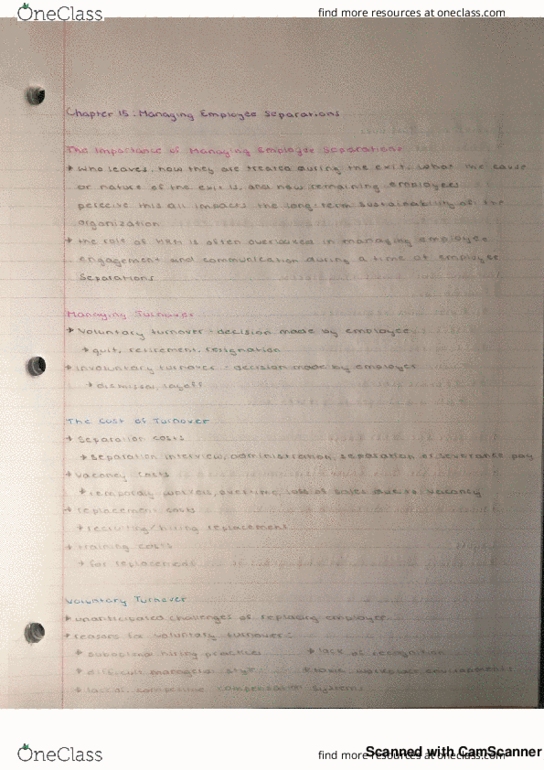 OneClass
find more resources at oneclass.com
Chapter 15: Managing Employee Separations
The Importance of Managing Employee Separations
who leaves, how they are treated during the exit, what the cause
or nature of the exit is, and how remaining employees
perceive this all impacts the long term sustainability of the
organization
the role of HRM is often overlooked in managing employee
engagement and communication during a time of employee
separations
Managing Turnover
Voluntary turnover - decision made by employee
quit, retirement, resignation
Involuntary turnover - decision made by employer
dismissal, layoff
The Cost of Turnover
Separation costs
separation interview, administration, separation or severance pay
vacancy costs
temporary workers, overtime, loss of sales due to vacancy
replacement costs
recruiting/hiring replacement
training costs
for replacement
Voluntary Turnover
unanticipated challenges of replacing employee
reasons for voluntary turnover:
suboptimal hiring practices
lack of recognition
difficult managerial style
work environments
competitive compensation systems
OneClass
find more resources at oneclass.com
Scanned with CamScanner